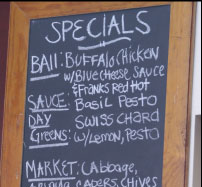 SPECIALS
BALL: BUFFALO CHICKEN
W/BLUE CHEESE SAUCE
& FRANKS RED HOT
SAUCE: BASIL PESTO
DAY
GREENS: SWISS CHARD
W/LEMON, PESTO
MARKET: CABBAGE,
ARUGULA, CAPERS, CHIVES